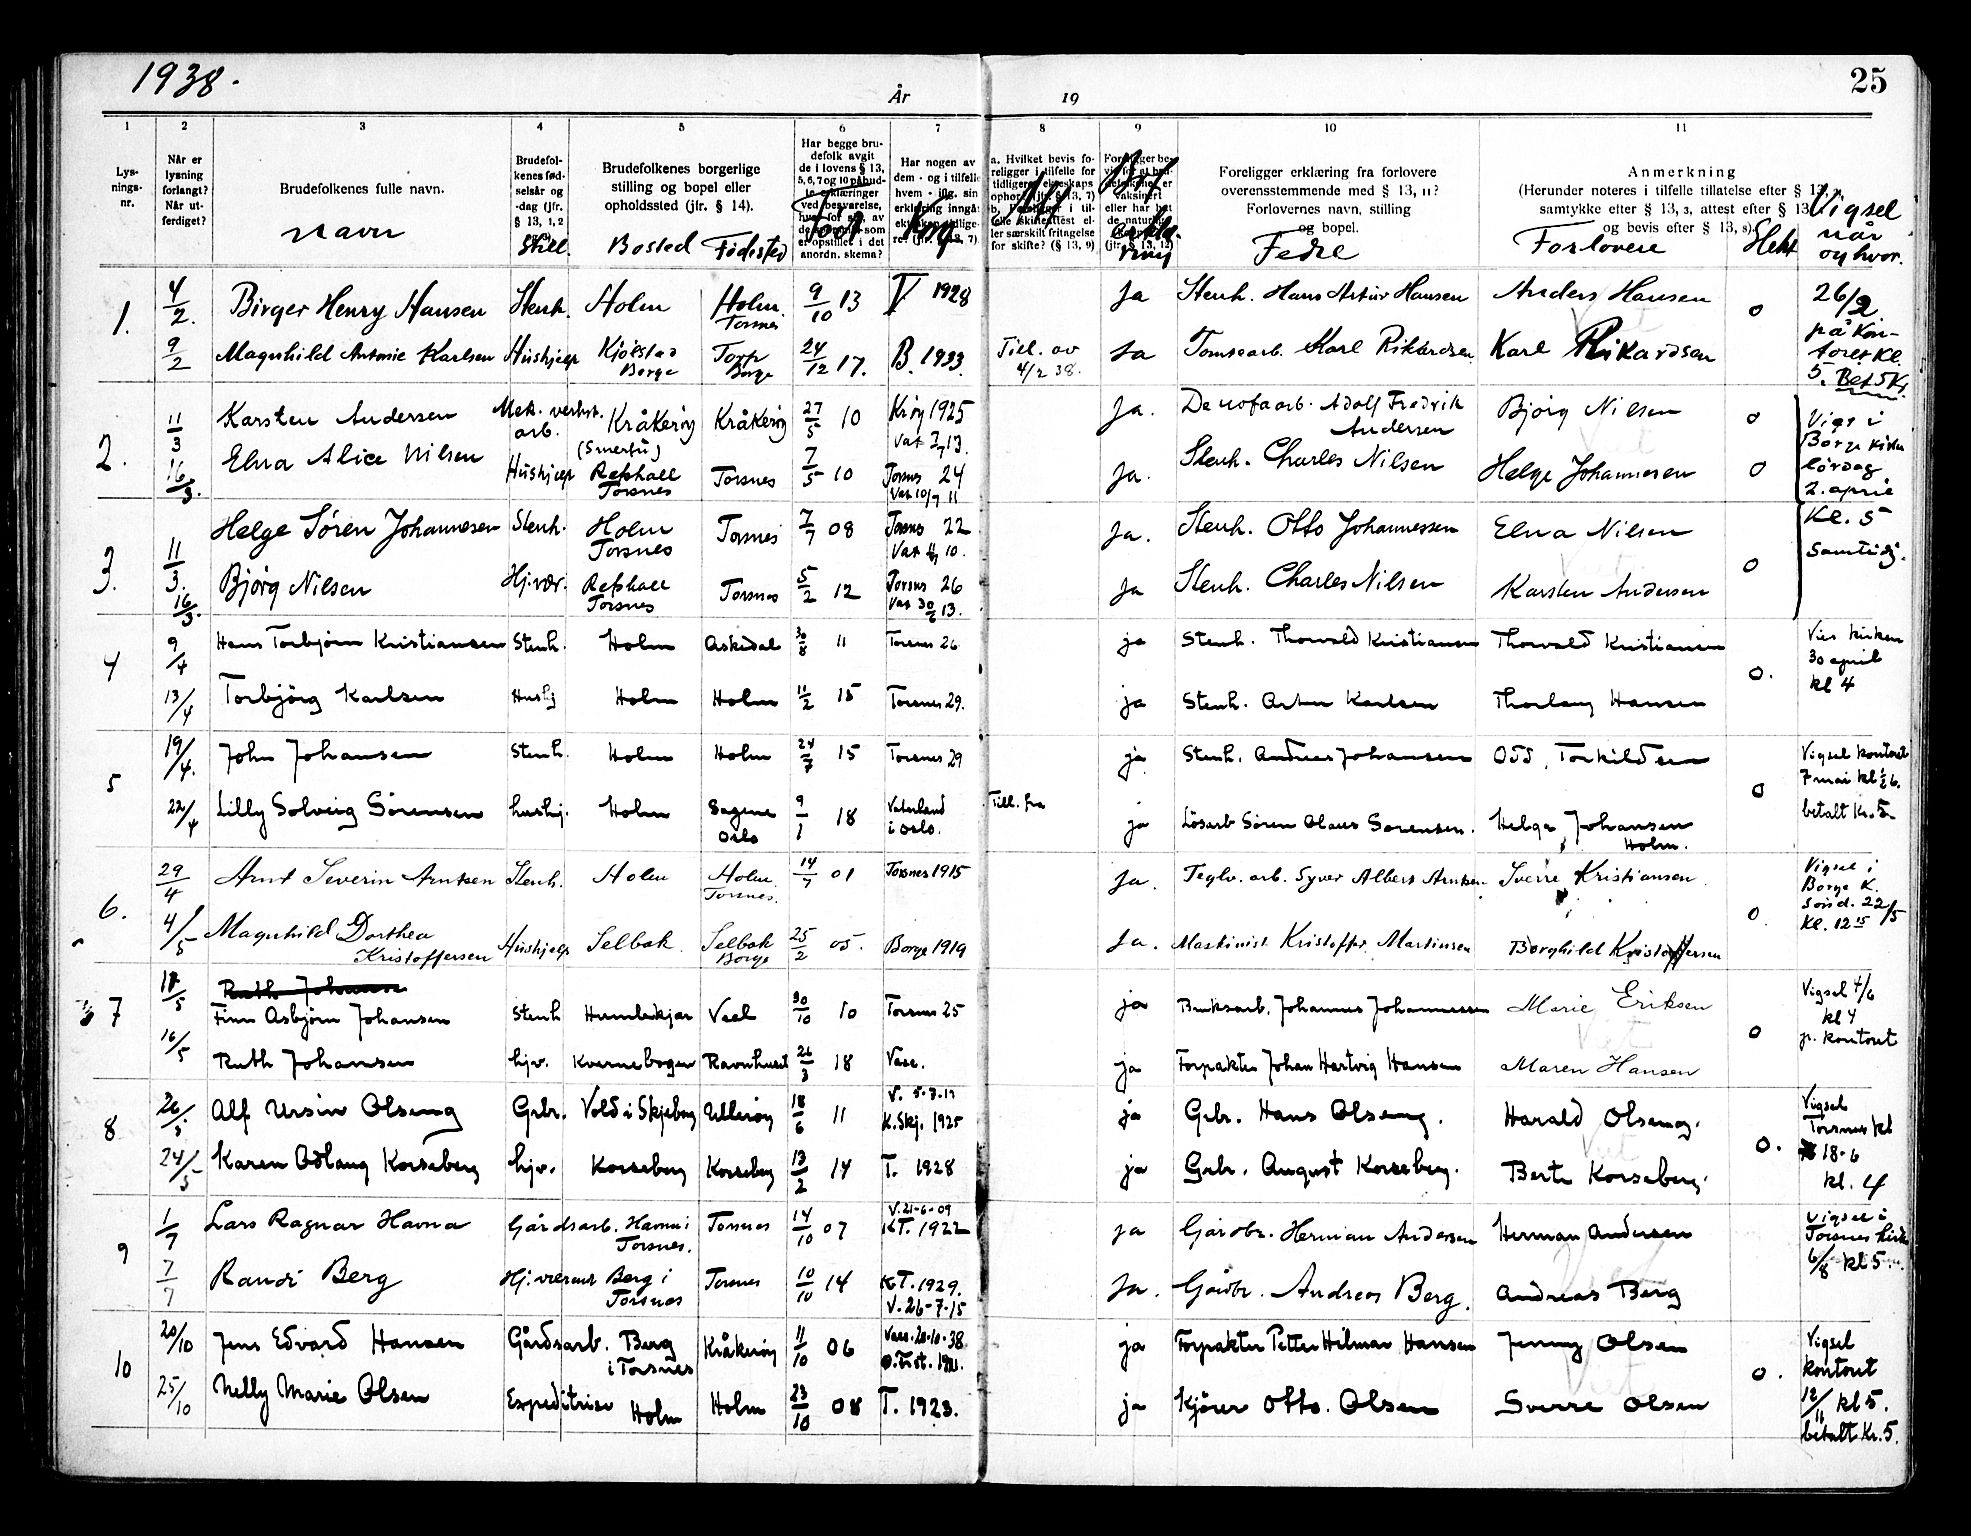 1938.
25
År
19
1
2
3
4
5
6
7
8
9
10
11
Lys-
nings-
nr.
Når er
lysning
forlangt?
Når ut-
ferdiget?
Brudefolkenes fulle navn.
Navn
Brudefol-
kenes fød-
selsår og
-dag (jfr.
§ 13, 1, 2
Still.
Brudefolkenes borgerlige
stilling og bopel eller
opholdssted (jfr. § 14).
Bosted Fødested
Har begge bru-
defolk avgit
de i lovens § 13,
5, 6, 7 og 10 påbud-
erklæringer
ved besvarelse,
hver for sig, av
som
er opstillet i det
anordn. skema?
Har nogen av
dem - og i tilfelle
hvem - iflg. sin
Konf
a. Hvilket bevis fo-
religger i tilfelle for
tidligere
ler særskilt fritagelse
for skifte? (§ 13, 9)
Foreligger be-
vaksinert
(jfr. § 13, 12)
Foreligger erklæring fra forlovere
overensstemmende med § 13, 11?
Forlovernes navn, stilling
og bopel.
Fedre
Anmerkning
(Herunder noteres i tilfelle tillatelse efter § 13,
samtykke efter § 13, 3, attest efter § 13
og bevis efter § 13, 8).
Forlovere
Slekt
Vigsel
når
og hvor.
1. 4/2. Birger Henry Hansen Stenh. Holm Holm Torsnes 9/10 13 T 1928 Ja Stenh. Hans Artur Hansen Anders Hansen 0 26/2.
9/2 Magnhild Antonie Karlsen Hushjelp Kjølstad Borge Torp Borge 24/12 17. B. 1933. Till. av 4/2 38. Ja Tomtearb. Karl Rikardsen Karl Rikardsen på kon-
toret kl.
5. Bet 5 Kr
2. 11/3 Karsten Andersen Mek. verkst. arb. Kråkerøy (Smertu) Kråkerøy 27/5 10 Krøy 1925 Ja. Denofaarb. Adolf Fredrik Andersen Bjørg Nilsen 0 Vigs i
Borge kirke
16/3. Elna Alice Nilsen Hushjelp Refshall Torsnes Torsnes 7/5 10 Torsnes 24 Vak 10/9 11 Ja. Stenh. Charles Nilsen Helge Johannesen 0 lørdag
2. april
3. 11/3. Helge Søren Johannesen Stenh. Holm Torsnes Torsnes 7/7 08 Torsnes 22 Ja. Stenh. Otto Johannessen Elna Nilsen Kl. 5
samtidig.
16/3. Bjørg Nilsen Hj.vær. Refshall Torsnes Torsnes 5/2 12 Torsnes 26 Ja Stenh. Charles Nilsen Karsten Andersen 0
4 9/4 Hans Torbjørn Kristiansen Stenh. Holm Askedal 30/8 11 Torsnes 26 ja Stenh. Thorvald Kristiansen Thorvald Kristiansen Vies kirken
30 april
kl 4
13/4 Torbjørg Karlsen Hushj Holm Holm 11/2 15 Torsnes 29. ja Stenh. Artur Karlsen Thorlaug Hansen 0.
5 19/4. John Johansen Stenh. Holm Holm 24/7 15 Torsnes 29 ja Stenh. Andreas Johansen Odd Torkildsen Vigsel kontoret
7 mai kl ½ 6.
22/4 Lilly Solveig Sørensen hushj. Holm Sagene Oslo 9/1 18 Vaterland i Oslo. Till. fra ja Løsarb Søren Olaus Sørensen. Helge Johansen Holm. 0 betalt Kr. 5
6. 29/4 Arnt Severin Arntzen Stenh. Holm Holm Torsnes. 14/7 01 Torsnes 1915 Ja. Teglv. arb. Syver Albert Arntzen Sverre Kristiansen Vigsel i
Borge K.
4/5 Magnhild Dorthea Kristoffersen Hushjelp Selbak Selbak Borge 25/2 05. Borge 1919 Ja. Maskinist Kristoffer Martinsen Borghild Kristoffersen 0 Sønd. 22/5
Kl. 12 15
7 Ruth Johansen
Finn Asbjørn Johansen Stenh Humlekjær Vael 30/10 10 Torsnes 25 ja Bruksarb. Johannes Johannessen Marie Eriksen Vigsel 4/6
kl 4
16/5 Ruth Johansen hjv. Kvernebogen Ravnhuset 26/3 18 Vase. ja Forpakter Johan Hartvig Hansen Maren Hansen 0 p. kontoret
8 Alf Ursin Olseng Grbr. Vold i Skjeberg Ullerøy 18/6 11 K. Skj. 1925 ja Grbr. Hans Olseng. Harald Olseng. Vigsel
Torsnes kl
24/5 Karen Odlaug Korseberg hjv. Korseberg Korseberg 13/2 14 T. 1928 ja Grbr. August Korseberg. Berte Korseberg. 0. 18-6
kl. 4
9 1/7 Lars Ragnar Havna Gårdsarb. Havna i Torsnes. Torsnes 14/10 07 V. 21-6-09 KT. 1922 ja Gårdbr. Herman Andersen Herman Andersen Vigsel i
Torsnes kirke
7/7 Randi Berg Hj. værende Berg i Torsnes Torsnes 10/10 14 KT. 1929. V. 26-7-15 Ja. Gårdbr. Andreas Berg. Andreas Berg 6/8 kl 5
10 20/10 Jens Edvard Hansen Gårdsarb. Berg i Torsnes Kråkerøy 11/10 06 Vaks. 20-10-38 ja Forpakter Petter Hilmar Hansen Jenny Olsen Vigsel
kontoret
25/10 Nelly Marie Olsen Expeditrise Holm Holm 23/10 08 T. 1923. ja Kjører Otto Olsen Sverre Olsen 0. 12/11 kl 5.
betalt Kr. 5.